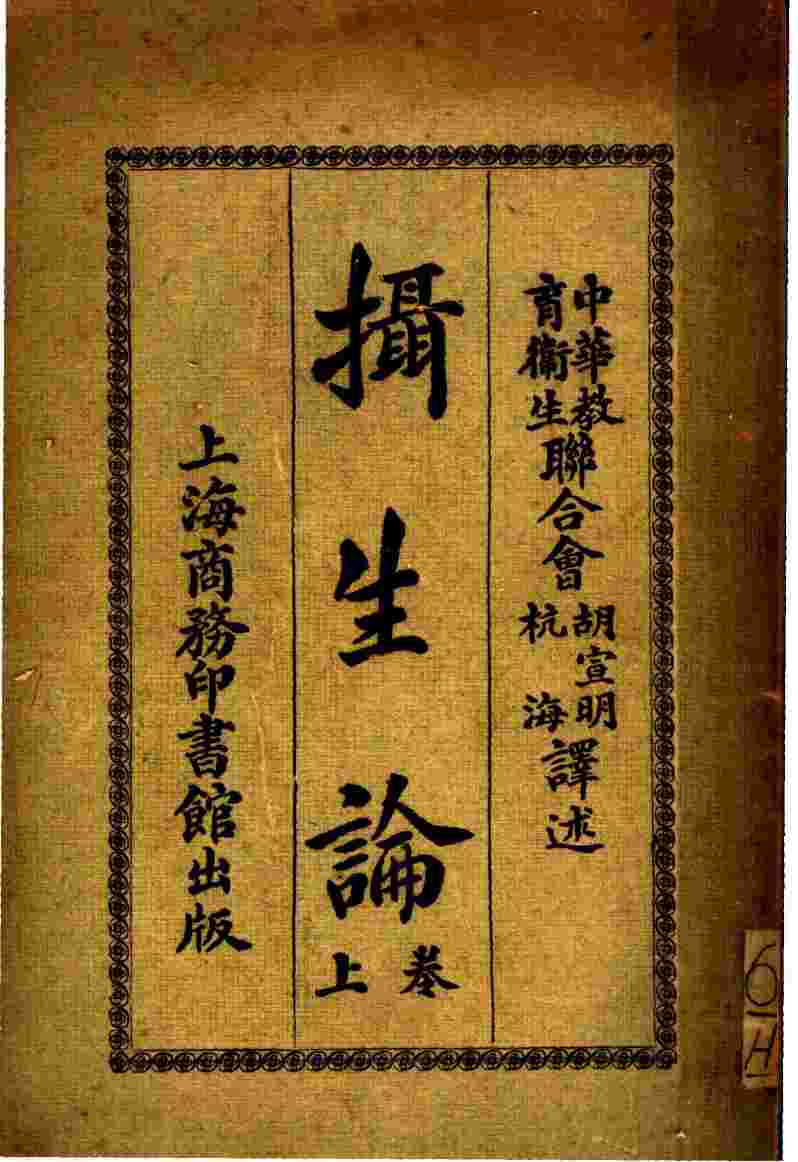 中華教
育衞生
聯合會
胡宣明
杭海
譯述
攝生論
卷上
上海商務印書館出版
6
H